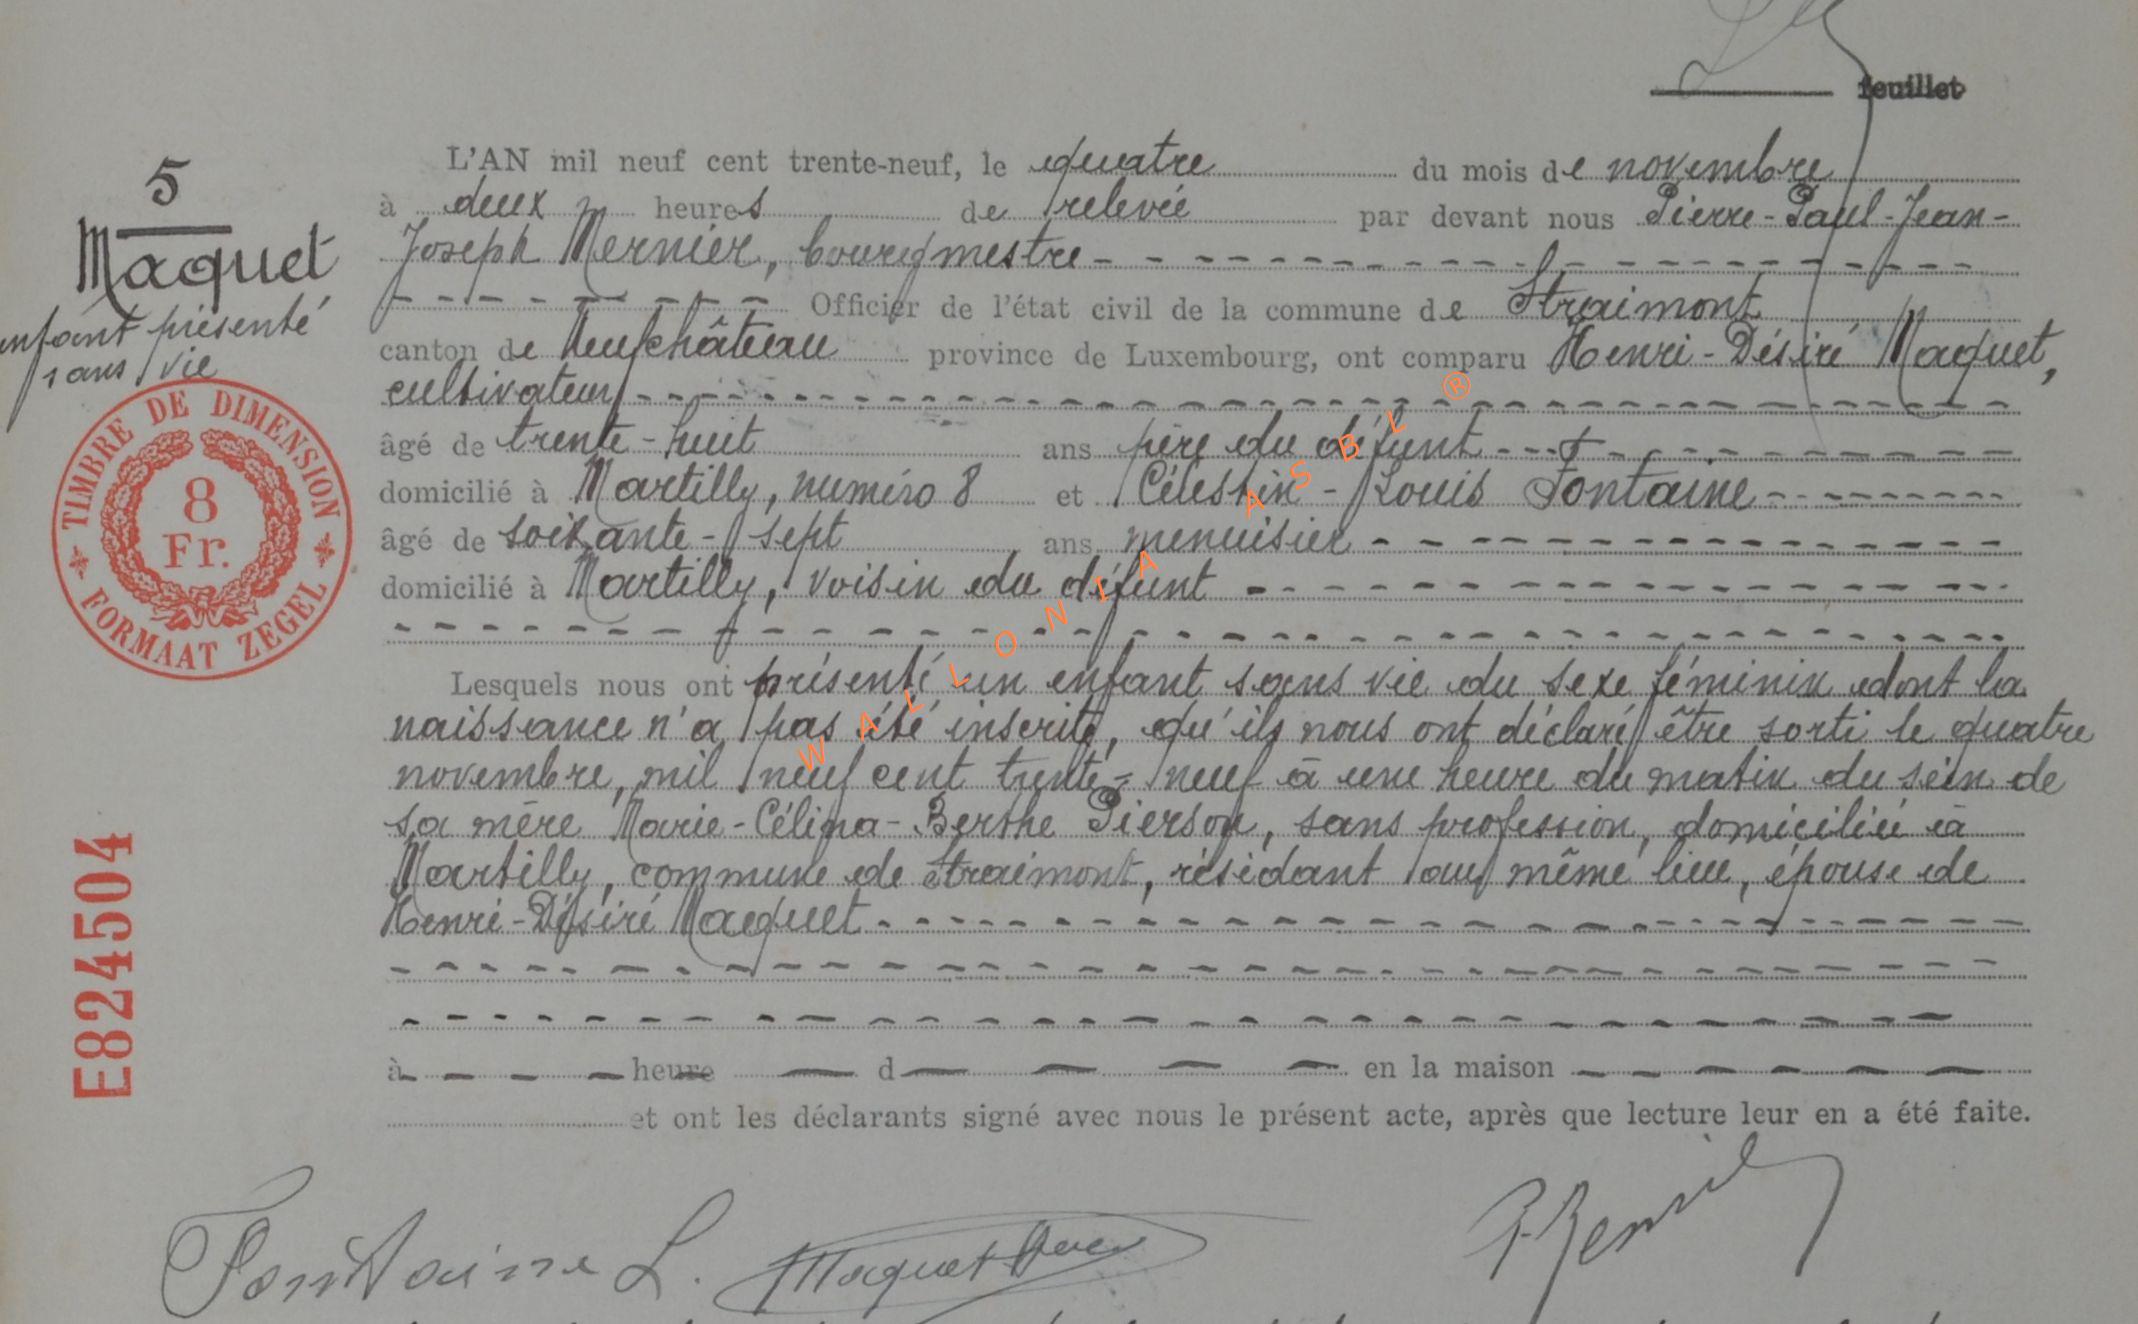 feuillet
5
Maquet
enfant présenté
sans vie
TIMBRE DE DIMENSION
8
Fr.
FORMAAT ZEGEL
E824504
L'AN mil neuf cent trente-neuf, le quatre du mois de novembre
à deux heures de relevée par devant nous Pierre-Paul-Jean-
Joseph Mernier, bourgmestre
Officier de l'état civil de la commune de Straimont
canton de Neufchâteau province de Luxembourg, ont comparu Henri-Désiré Maquet,
cultivateur
âgé de trente-huit ans père du défunt
domicilié à Martilly, numéro 8 et Célestin-Louis Fontaine
âgé de soixante-sept ans menuisier
domicilié à Martilly, voisin du défunt
Lesquels nous ont présenté un enfant sans vie du sexe féminin dont la
naissance n'a pas été inscrite, qu'ils nous ont déclaré être sorti le quatre
novembre, mil neuf cent trente-neuf à une heure du matin du sein de
sa mère Marie-Célina-Berthe Pierson, sans profession, domiciliée à
Martilly, commune de Straimont, résidant au même lieu, épouse de
Henri-Désiré Maquet
à heure d en la maison
et ont les déclarants signé avec nous le présent acte, après que lecture leur en a été faite.
Fontaine L. Maquet
WALLONIA ASBL ®